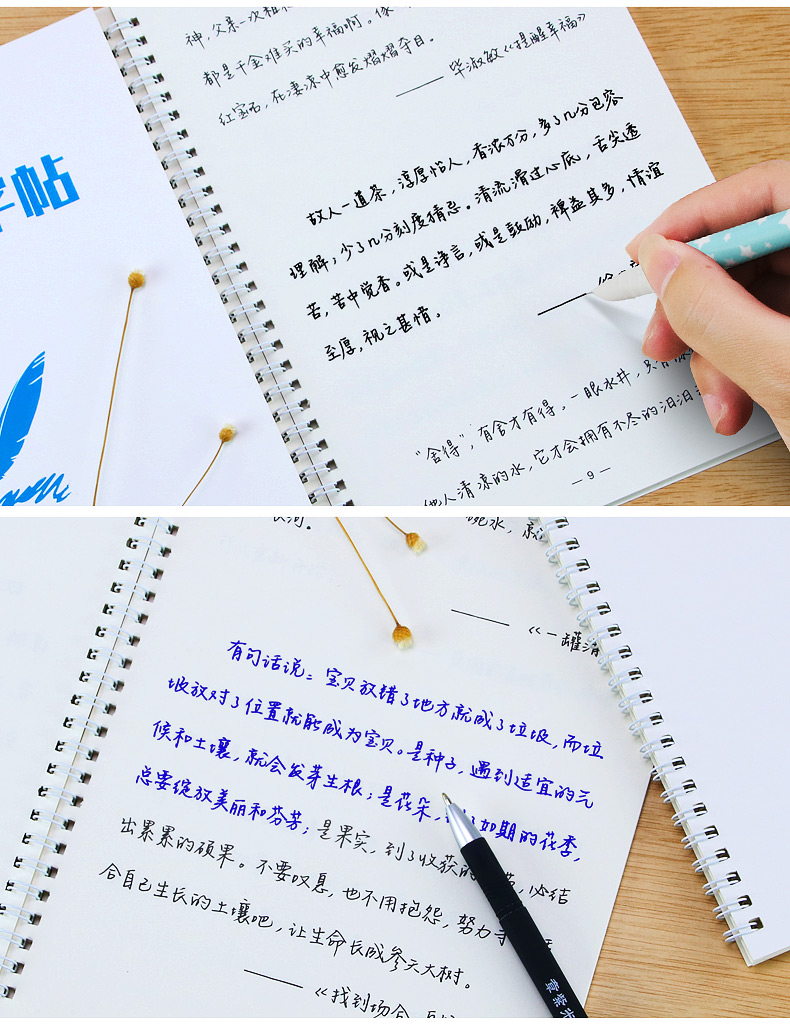 字帖
神，父亲一次粗
都是千金难买的幸福啊。像
红宝石，在凄凉中愈发熠熠夺目。
——毕淑敏《提醒幸福》
故人一道茶，淳厚怡人，香浓万分，多了几分包容
理解，少了几分刻度猜忌。清流滑过心底，舌尖透
苦，苦中觉香。或是诤言，或是鼓励，裨益甚多，情谊
至厚，视之甚惜。
“舍得”，有舍才有得。一眼水井，只有
他人清凉的水，它才会拥有不尽的汩汩
—9—
碗水，
——《一罐清
有句话说：宝贝放错了地方就成了垃圾，而垃
圾放对了位置就能成为宝贝。是种子，遇到适宜的气
候和土壤，就会发芽生根；是花朵，如期的花季，
总要绽放美丽和芬芳；是果实，到了收获的，必结
出累累的硕果。不要叹息，也不用抱怨，努力
合自己生长的土壤吧，让生命长成参天大树。
——《找到场合